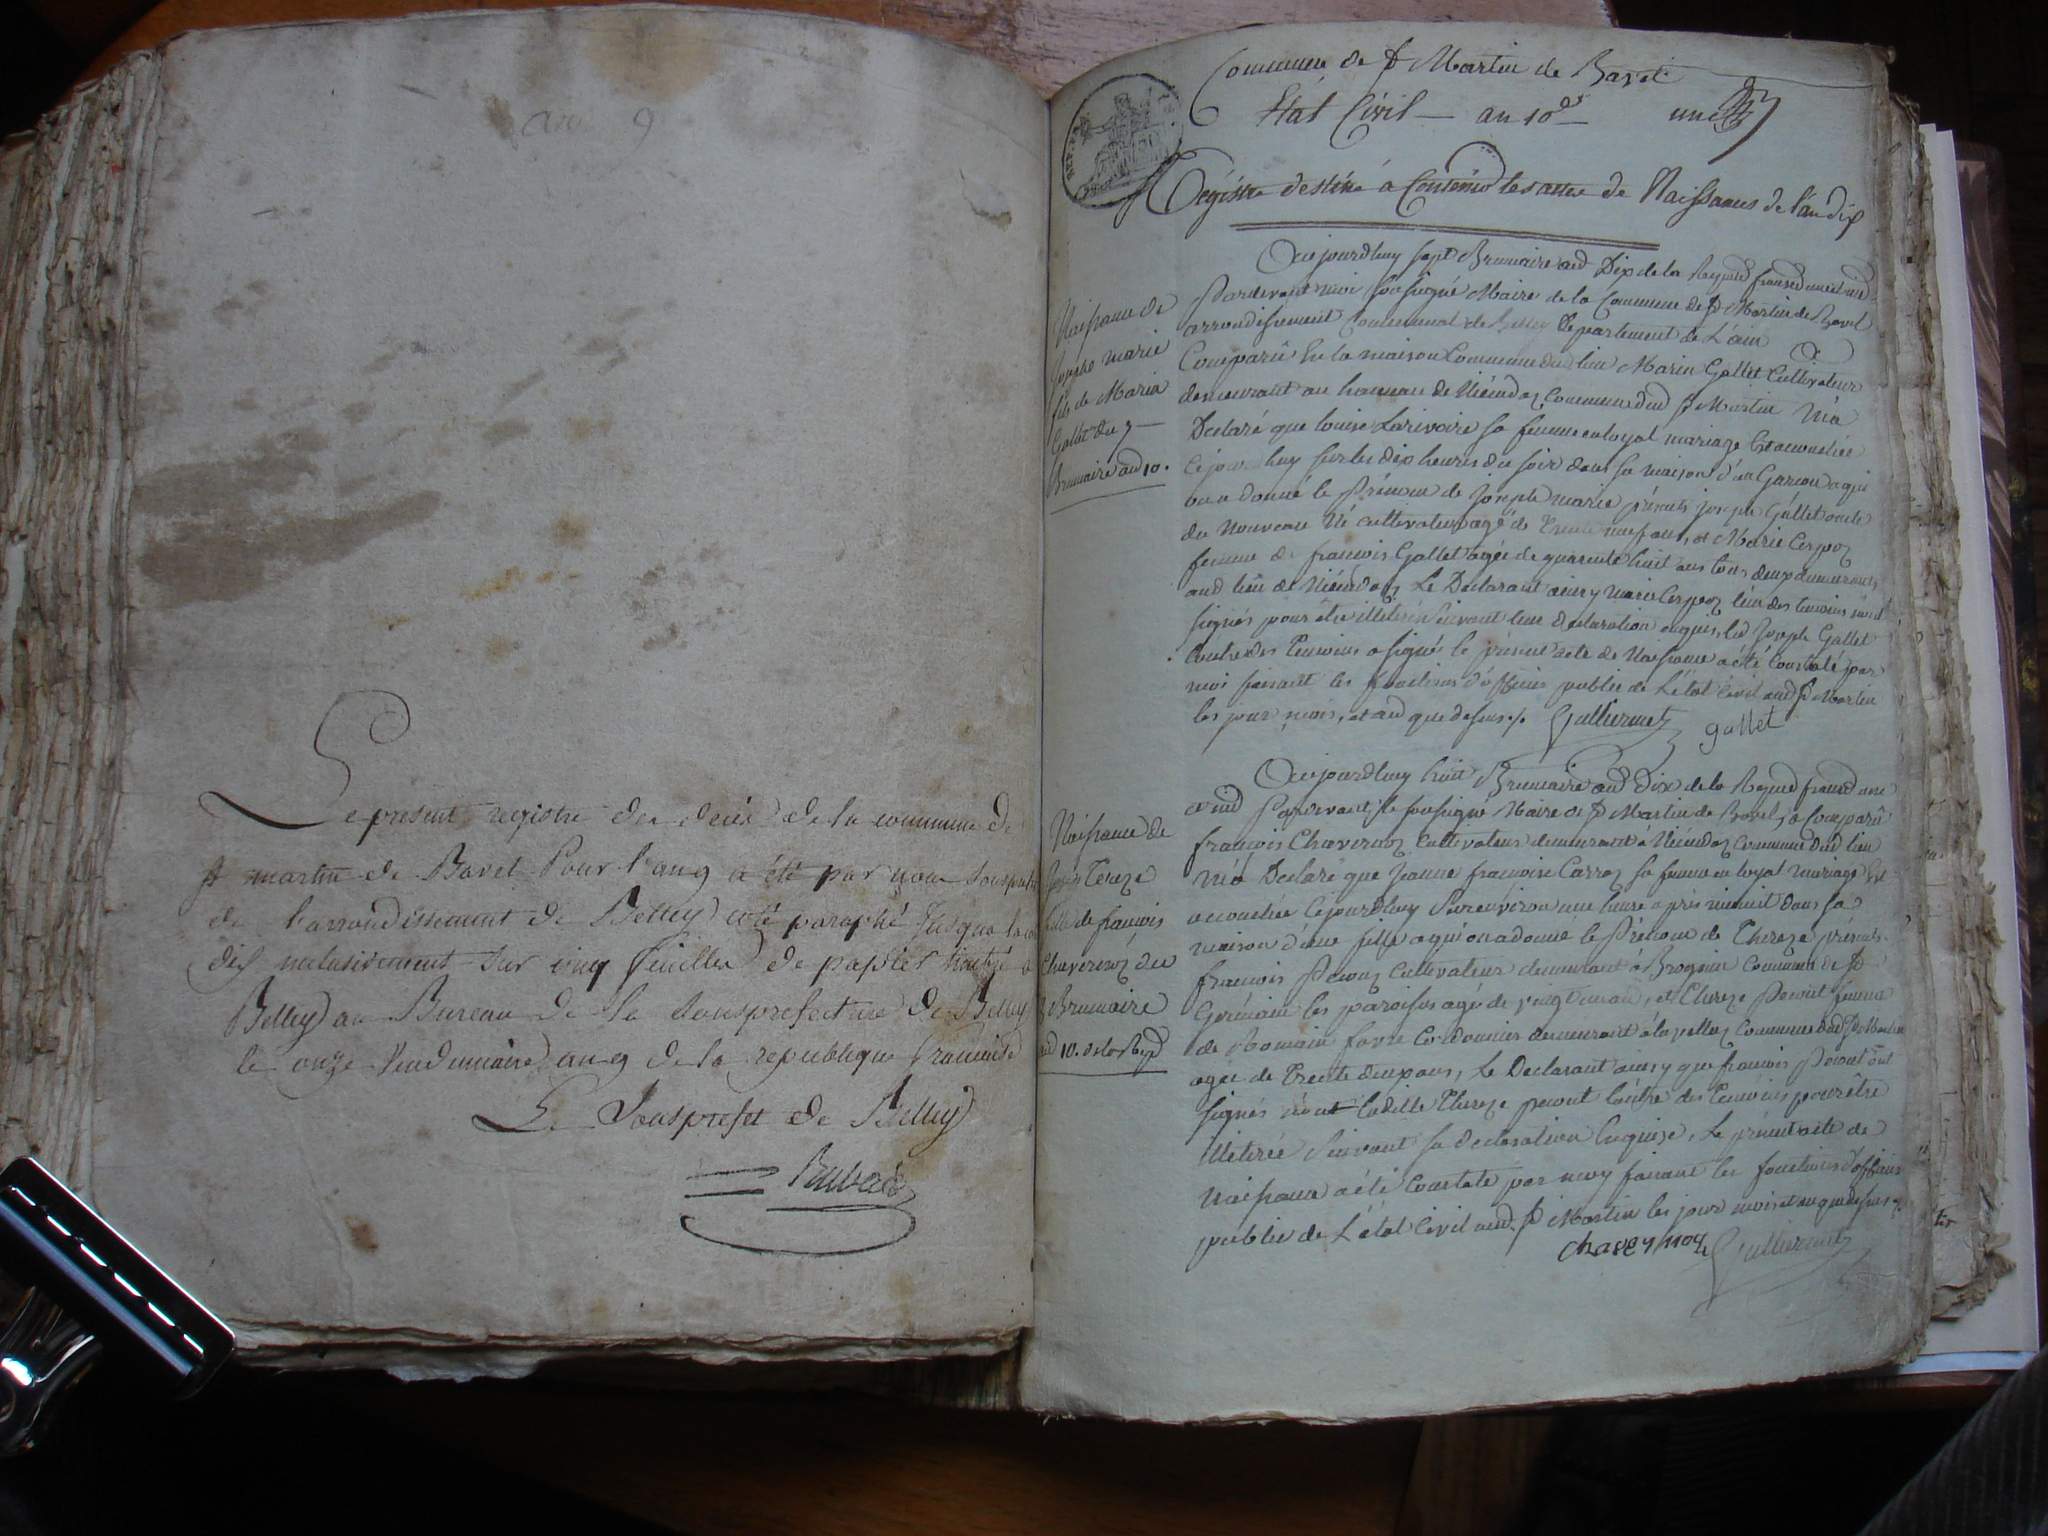 an 9
Le present registre des décès de la commune de
St martin de Bavel Pour l'an 9 a été par nous Sousprefet
de l'arrondissement de Belley coté paraphé Jusqu'a la cote
dix inclusivement Sur cinq feuilles de papier timbré a
Belley au Bureau de la Sousprefecture de Belley
le onze Vendemiaire an 9 de la republique francaise
Le Sousprefet de Belley
Commune de St Martin de Bavel
Etat Civil — an 10 — un
Registre destiné a Contenir les actes de Naissances de l'an dix
Naissance de
Josephe marie
fils de Marin
Gallet du 7
Brumaire and 10.
Aujourdhuy sept Brumaire and Dix de la
Pardevant moi soussigné Maire de la Commune de St Martin de Bavel
arrondissement Communal de Belley Departement de L'ain
Comparû En la maison Commune du lieu Marin Gallet Cultivateur
demeurant au hameau de Commune dud St Martin M'a
Declaré que louise Larivoire sa femme en loyal mariage Est accouchée
cejourdhuy sur les dix heures du soir dans sa maison d'un Garcon a qui
on a donné le Prénom de Joseph marie présents joseph Gallet oncle
du Nouveau Né cultivateur agé de Trente neuf ans, et Marie
femme de francois Gallet agée de quarente huit ans tous deux demeurants
aud lieu de Le Declarant ainsy marie l'un des temoins
signés pour être illitérés suivant leur declaration enquis, led Joseph Gallet
l'autre des Temoins a signé le présent acte de Naissance a été Constaté par
moi faisant les fonctions d'officier public de L'état Civil aud St Martin
les jour, mois, et and que dessus
gallet
Naissance de
Tereze
fille de francois
Chaveyrioz du
8 Brumaire
and 10. de la Rep
Aujourdhuy huit Brumaire and Dix de la
Pardevant le soussigné Maire de St Martin de Bavel, a Comparû
francois Cultivateur demeurant à Commune dud lieu
M'a Declaré que Jeanne francoise sa femme en loyal mariage Est
accouchée cejourdhuy Sur environ une heure après minuit dans sa
maison d'une fille a qui on a donné le Prénom de Thereze présents
francois Cultivateur demeurant à Brognin Commune de St
Germain les paroisses agé de vingt ans, et Thereze femme
de Romain favre Cordonnier demeurant à Commune dud St Martin
agée de Trente deux ans, Le Declarant ainsy que francois ont
signés ladite Thereze l'autre des Temoins pour être
illitérée Suivant sa declaration Enquise, Le présent acte de
Naissance a été Constaté par moy faisant les fonctions d'officier
public de L'état Civil aud. St Martin les jour mois et an que dessus